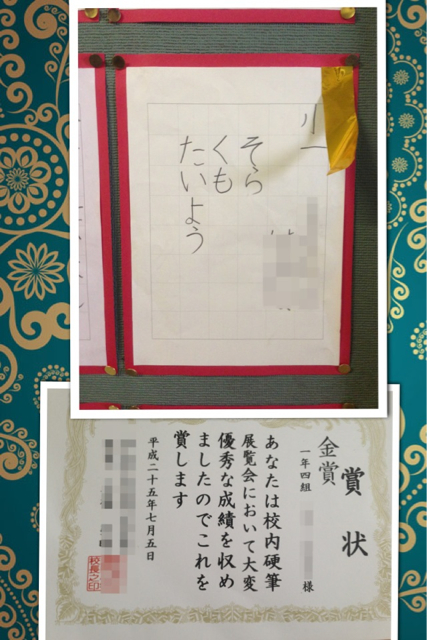 小一
そら
くも
たいよう
賞状
金賞
一年四組
様
あなたは校内硬筆
展覧会において大変
優秀な成績を収め
ましたのでこれを
賞します
平成二十五年七月五日
校長之印